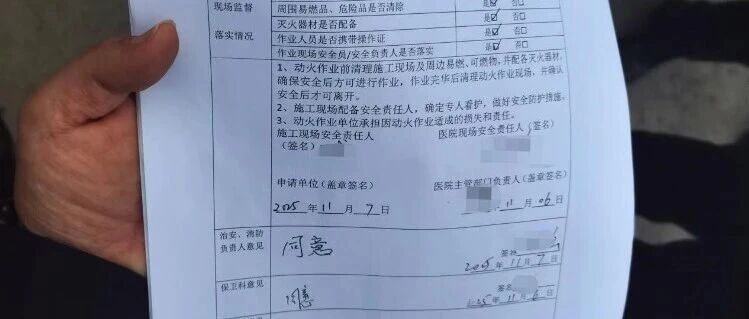 现场监督
落实情况
周围易燃品、危险品是否清除 是☑ 否□
灭火器材是否配备 是☑ 否□
作业人员是否携带操作证 是☑ 否□
作业现场安全员/安全负责人是否落实 是☑ 否□
1、动火作业前清理施工现场及周边易燃、可燃物,并配备灭火器材,
确保安全后方可进行作业,作业完毕后清理动火作业现场,并确认
安全后才可离开。
2、施工现场配备安全责任人,确定专人看护,做好安全防护措施。
3、动火作业单位承担因动火作业造成的损失和责任。
施工现场安全责任人 医院现场安全责任人(签名)
(签名)
申请单位(盖章签名) 医院主管部门负责人(盖章签名)
2025年11月7日 11月06日
治安、消防
负责人意见
同意
签名
2025年11月7日
保卫科意见
同意
签名
2025年11月6日